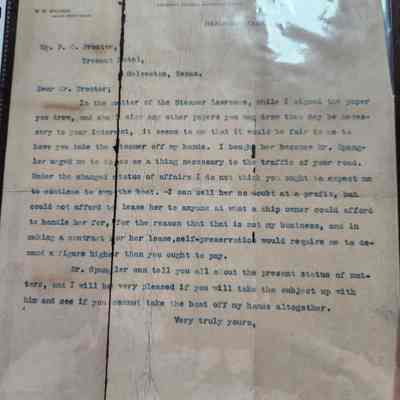 Mr. F. C. Procter,
Tremont Hotel,
Galveston, Texas.
Dear Mr. Procter;
In the matter of the Steamer Lawrence, while I signed the paper
you drew, and shall sign any other papers you may draw that may be neces-
sary to your interest, it seems to me that it would be fair to me to
have you take the steamer off my hands. I bought her because Mr. Spang-
ler urged me to do so as a thing necessary to the traffic of your road.
Under the changed status of affairs I do not think you ought to expect me
to continue to own the boat. I can sell her no doubt at a profit, but
could not afford to lease her to anyone at what a ship owner could afford
to handle her for, for the reason that that is not my business, and in
making a contract for her lease, self-preservation would require me to de-
mand a figure higher than you ought to pay.
Mr. Spangler can tell you all about the present status of mat-
ters, and I will be very pleased if you will take the subject up with
him and see if you cannot take the boat off my hands altogether.
Very truly yours,